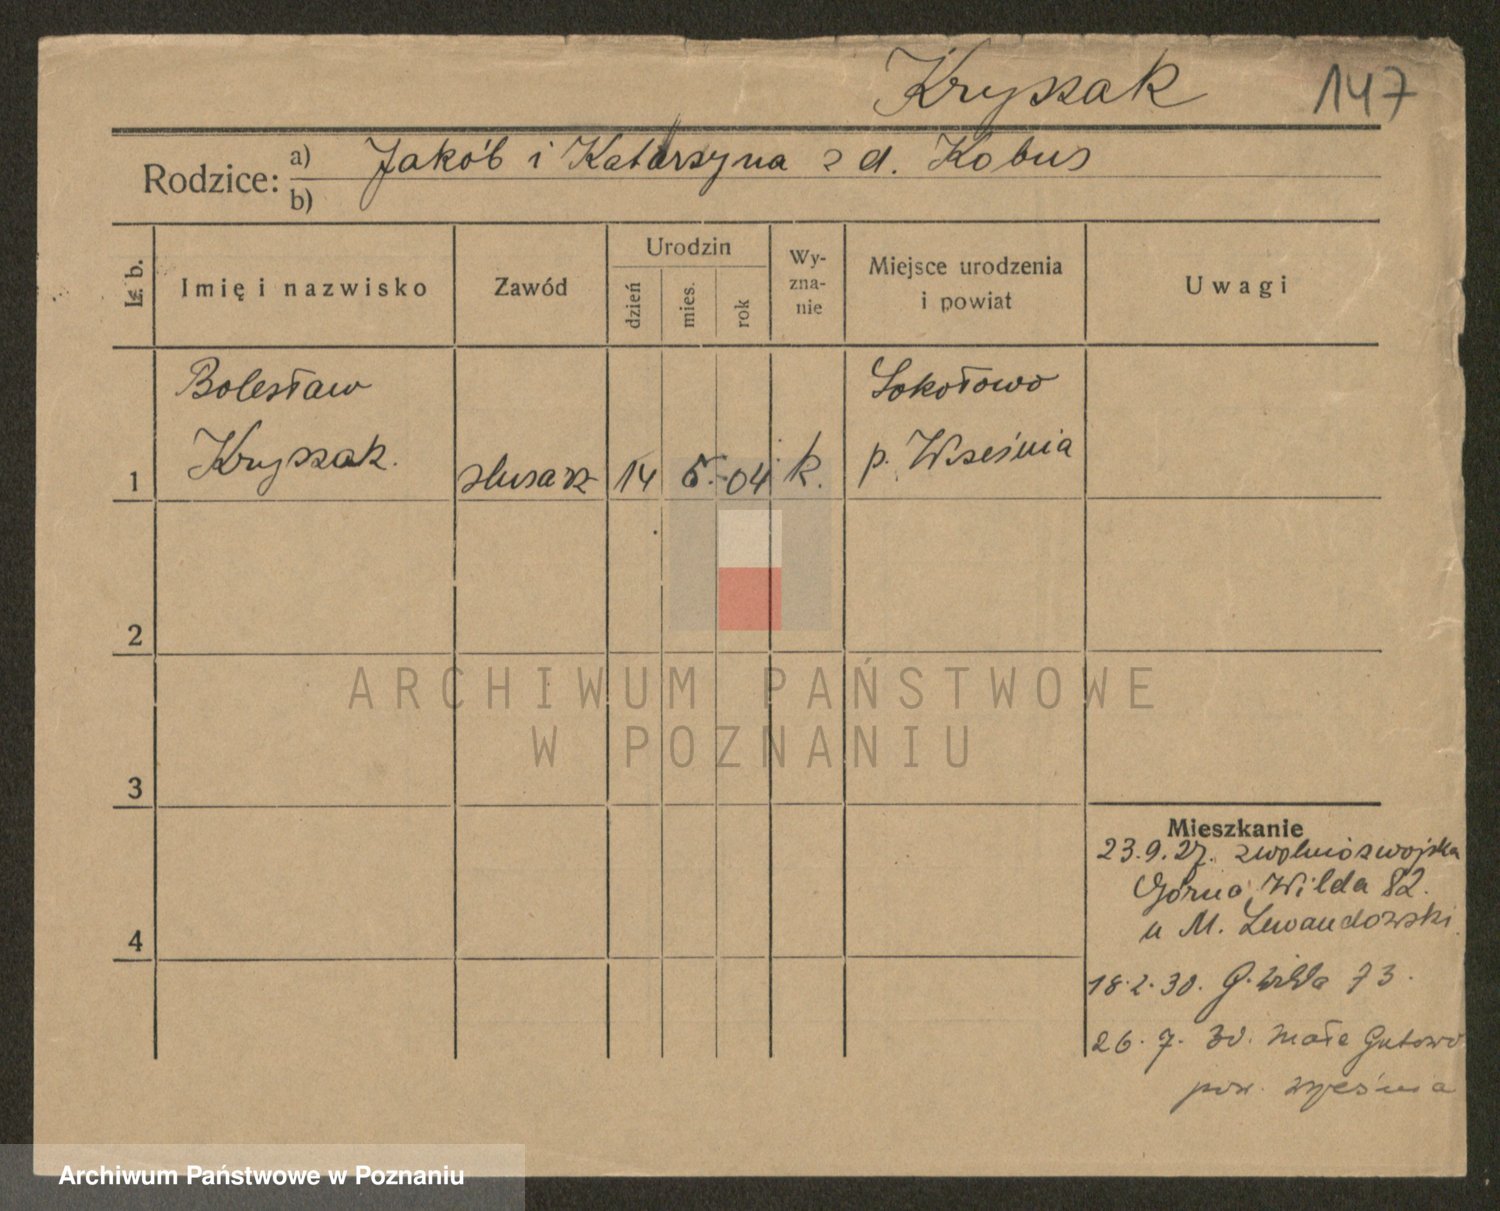 Kryszak 147
Rodzice: a) Jakób i Katarzyna z d. Kobus
b)
L. b.
Imię i nazwisko
Zawód
Urodzin
dzień
mies.
rok
Wy-
zna-
nie
Miejsce urodzenia
i powiat
Uwagi
Bolesław
Kryszak.
1
ślusarz
14
5.
04
k.
Sokołowo
p. Września
2
3
4
ARCHIWUM PAŃSTWOWE
W POZNANIU
Mieszkanie
23.9.27. zwolnio z wojska
Górna Wilda 82.
u M. Lewandowski
18.2.30. G. Wilda 73.
26.7.30. Małe Gutowo
pow. Września
Archiwum Państwowe w Poznaniu